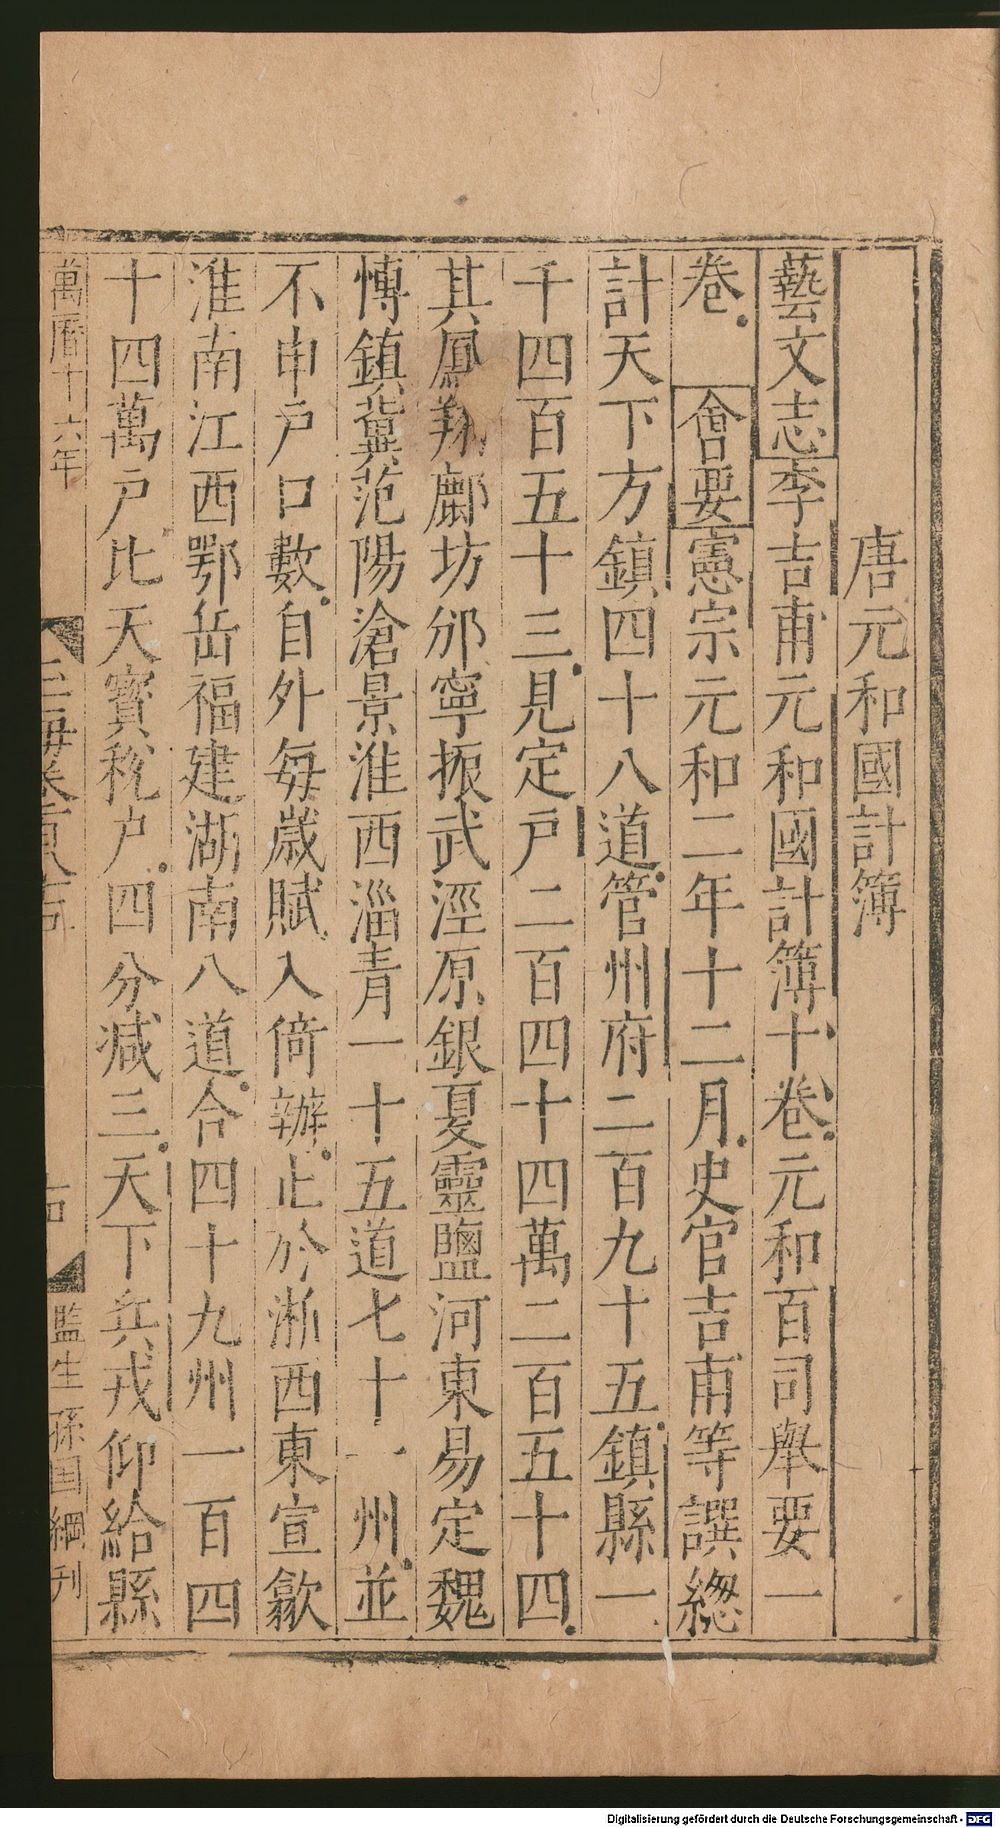 唐元和國計簿
藝文志李吉甫元和國計簿十卷元和百司舉要一
卷　會要憲宗元和二年十二月史官吉甫等譔緫
計天下方鎮四十八道管州府二百九十五鎮縣一
千四百五十三見定戸二百四十四萬二百五十四
其鳳翔鄜坊邠寧振武涇原銀夏靈鹽河東易定魏
博鎮冀范陽滄景淮西淄青一十五道七十一州並
不申戸口數自外每歲賦入倚辦止於浙西東宣歙
淮南江西鄂岳福建湖南八道合四十九州一百四
十四萬戸比天寶稅戸四分減三天下兵戎仰給縣
萬曆十六年
玉海卷百八十五
監生孫国綱刊
Digitalisierung gefördert durch die Deutsche Forschungsgemeinschaft - DFG